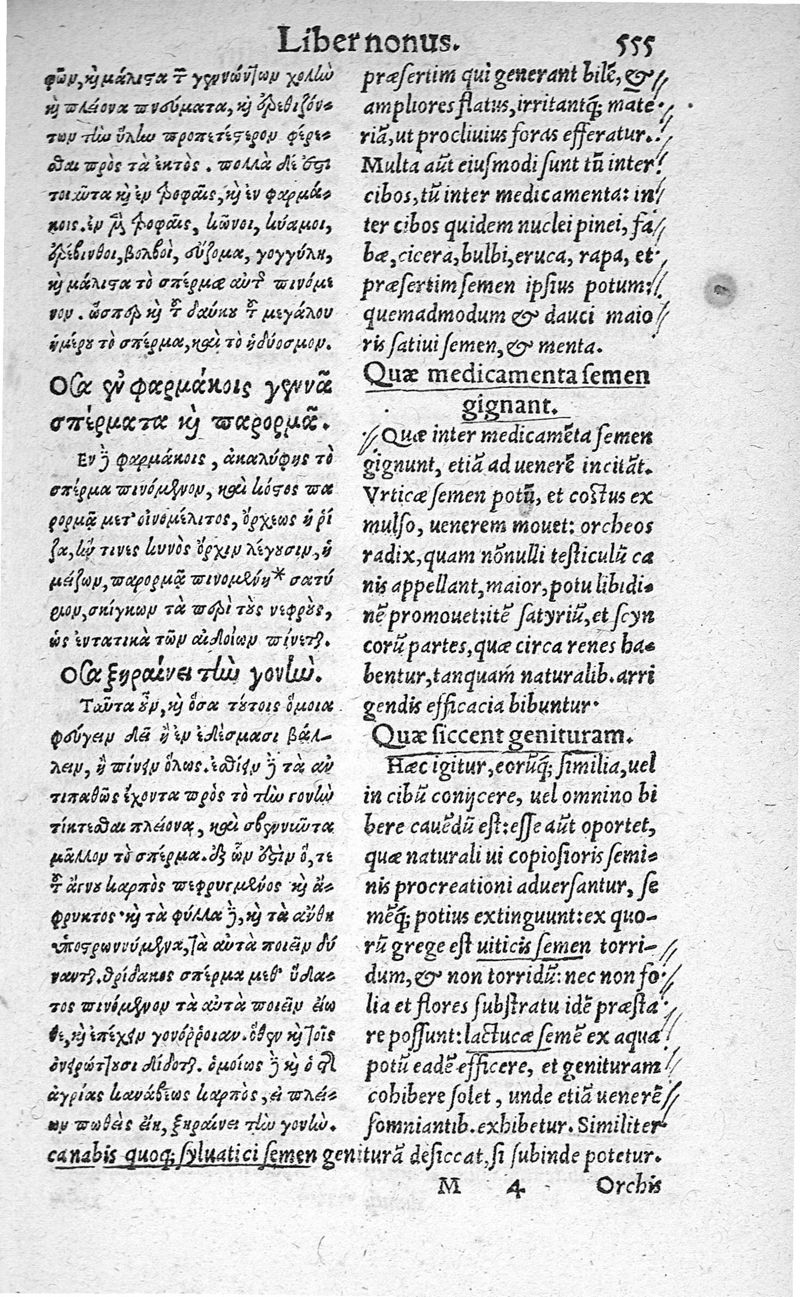 Liber nonus. 555
φῶν, καὶ μάλιστα τῶν γεννώντων χολὴν
καὶ πλείονα πνεύματα, καὶ ἐρεθιζόν-
των τὴν ὕλην προπετέστερον φέρε-
σθαι πρὸς τὰ ἐκτός. πολλὰ δέ ἐστι
τοιαῦτα καὶ ἐν τροφαῖς, καὶ ἐν φαρμά-
κοις. ἐν μὲν τροφαῖς, κῶνοι, κύαμοι,
ἐρέβινθοι, βολβοὶ, εὔζομα, γογγύλη,
καὶ μάλιστα τὸ σπέρμα αὐτῆς πινόμε
νον. ὥσπερ καὶ τοῦ δαύκου τοῦ μεγάλου
ἡμέρου τὸ σπέρμα, καὶ τὸ ἡδύοσμον.
Οσα ἐν φαρμάκοις γεννᾶ
σπέρματα καὶ παρορμᾶ.
Εν δὲ φαρμάκοις, ἀκαλύφης τὸ
σπέρμα πινόμενον, καὶ κόστος πα
ρορμᾶ μετ' οἰνομέλιτος, ὄρχεως ἡ ῥί
ζα, ἥν τινες κυνὸς ὄρχιν λέγουσιν, ἡ
μείζων, παρορμᾶ πινομένη* σατύ
ριον, σκίγκων τὰ περὶ τοὺς νεφροὺς,
ὡς ἐντατικὰ τῶν αἰδοίων πίνεται.
Οσα ξηραίνει τὴν γονήν.
Ταῦτα οὖν, καὶ ὅσα τούτοις ὅμοια
φεύγειν δεῖ ἢ ἐν ἐδέσμασι βάλ-
λειν, ἢ πίνειν ὅλως. ἐσθίειν δὲ τὰ ἀν
τιπαθῶς ἔχοντα πρὸς τὸ τὴν γονὴν
τίκτεσθαι πλείονα, καὶ σβεννύοντα
μᾶλλον τὸ σπέρμα. ἐξ ὧν ἐστὶν ὅ, τε
τοῦ ἄγνου καρπὸς πεφρυγμένος καὶ ἄ-
φρυκτος· καὶ τὰ φύλλα δὲ, καὶ τὰ ἄνθη
ὑποστρωννύμενα, τὰ αὐτὰ ποιεῖν δύ
ναντ. θρίδακος σπέρμα μεθ' ὕδα-
τος πινόμενον τὰ αὐτὰ ποιεῖν εἴω
θε, καὶ ἐπέχειν γονόρροιαν. ὅθεν καὶ τοῖς
ὀνειρώττουσι δίδοται. ὁμοίως δὲ καὶ ὁ τῆς
ἀγρίας κανάβεως καρπὸς, εἰ πλεί-
ων ποθεὶς εἴη, ξηραίνει τὴν γονήν.
præsertim qui generant bilē, &
ampliores flatus, irritantq; mate-
riā, ut procliuius foras efferatur.
Multa aūt eiusmodi sunt tū inter
cibos, tū inter medicamenta: in
ter cibos quidem nuclei pinei, fa
bæ, cicera, bulbi, eruca, rapa, et
præsertim semen ipsius potum:
quemadmodum & dauci maio
ris satiui semen, & menta.
Quæ medicamenta semen
gignant.
Quæ inter medicamēta semen
gignunt, etiā ad uenerē incitāt.
Vrticæ semen potū, et costus ex
mulso, uenerem mouet: orcheos
radix, quam nōnulli testiculū ca
nis appellant, maior, potu libidi-
nē promouet: itē satyriū, et scyn
corū partes, quæ circa renes ha-
bentur, tanquam naturalib. arri
gendis efficacia bibuntur.
Quæ siccent genituram.
Hæc igitur, eorūq; similia, uel
in cibū conijcere, uel omnino bi
bere cauēdū est: esse aūt oportet,
quæ naturali ui copiosioris semi-
nis procreationi aduersantur, se
mēq; potius extinguunt: ex quo-
rū grege est uiticis semen torri-
dum, & non torridū: nec non fo
lia et flores substratu idē præsta
re possunt: lactucæ semē ex aqua
potū eadē efficere, et genituram
cohibere solet, unde etiā uenerē
somniantib. exhibetur. Similiter
canabis quoq; syluatici semen geniturā desiccat, si subinde potetur.
M 4 Orchis